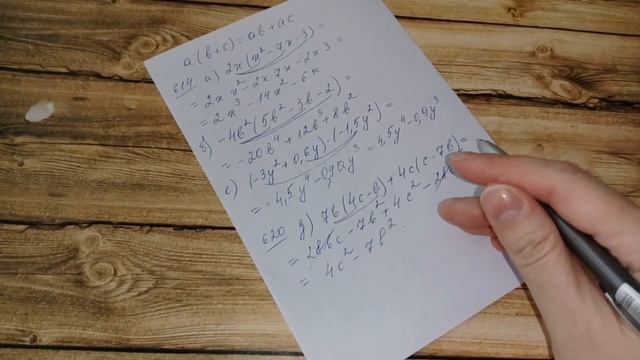 a(b+c)=ab+ac.
614 а) 2x(x²-7x-3)=
=2x·x²-2x·7x-2x·3=
=2x³-14x²-6x
б) -4b²(5b²-3b-2)=
=-20b⁴+12b³+8b²
е) (-3y²+0,6y)·(-1,5y²)=
=4,5y⁴-0,90y³=4,5y⁴-0,9y³
620 д) 7b(4c-b)+4c(c-7b)=
=28bc-7b²+4c²-28bc
=4c²-7b².